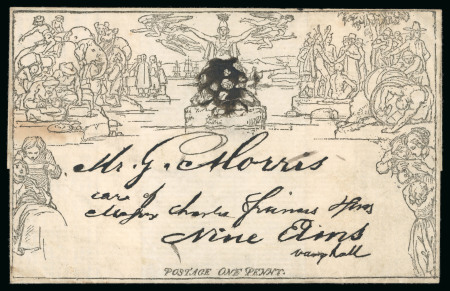 Mr. G. Morris
care of
Major Charles Francis
Nine Elms
Vauxhall
POSTAGE ONE PENNY.